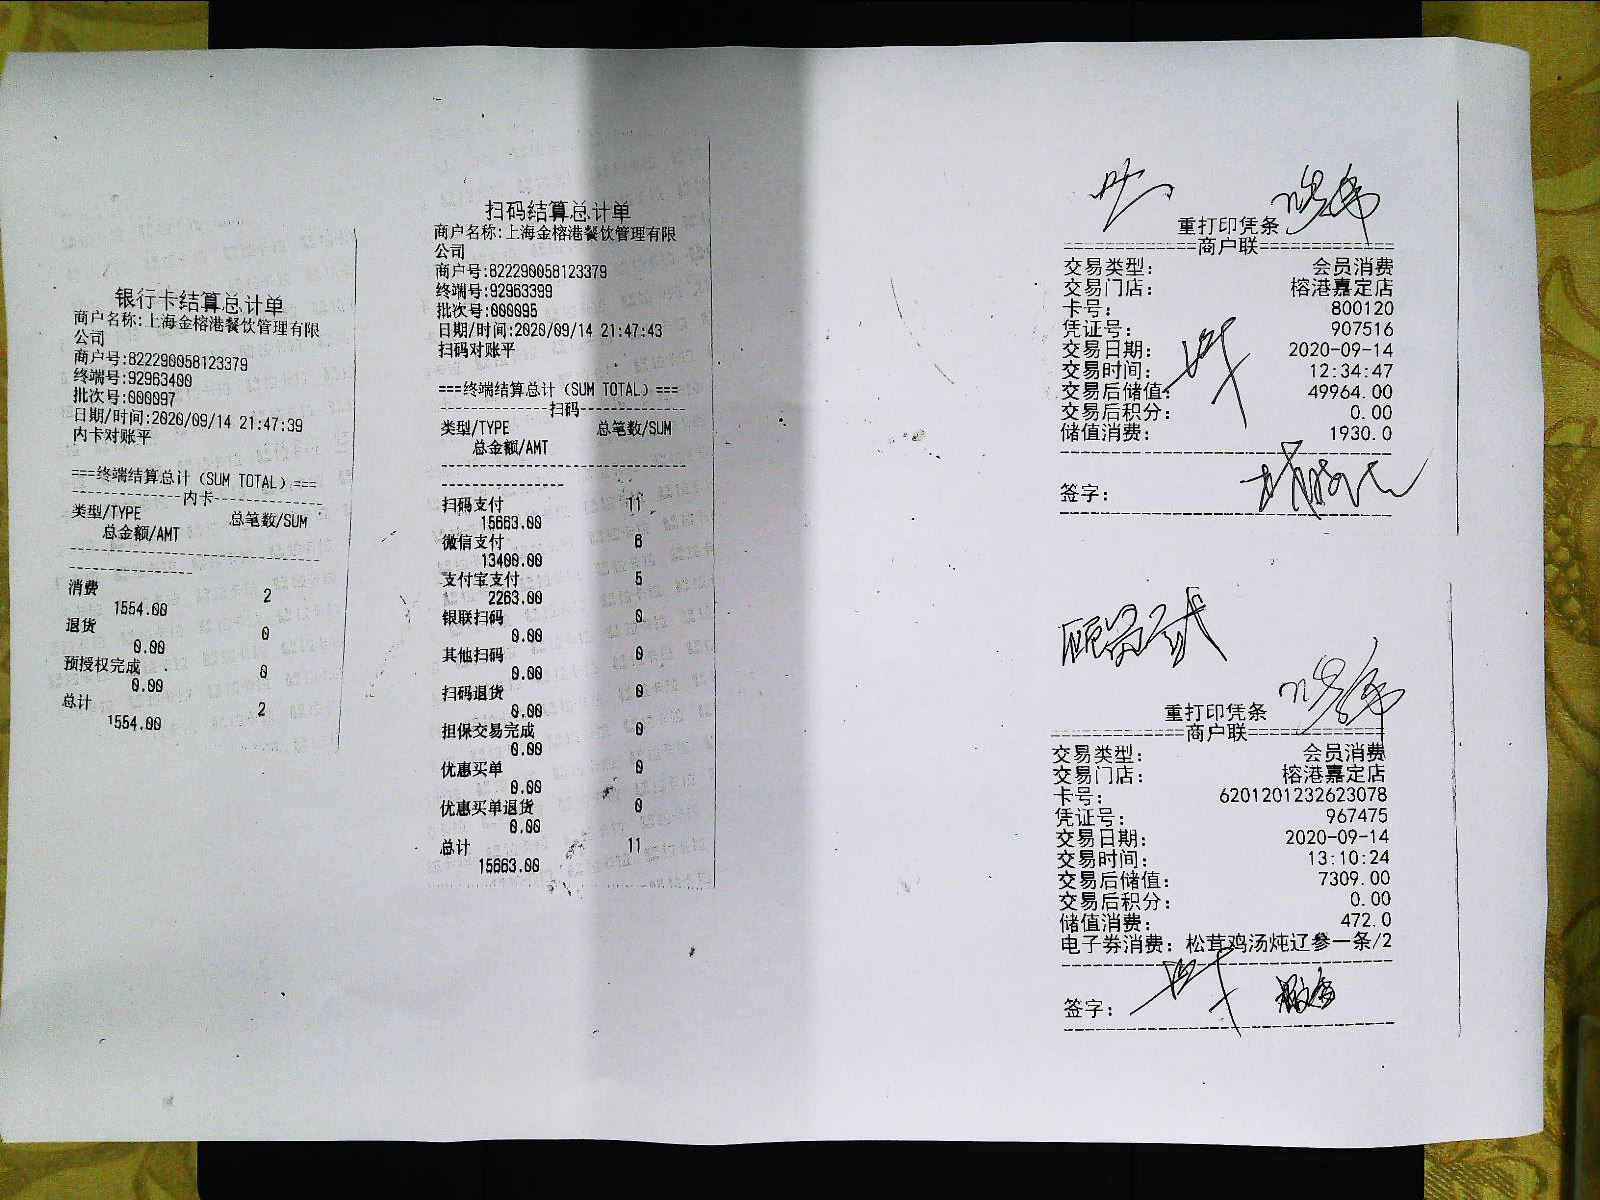 银行卡结算总计单
商户名称:上海金榕港餐饮管理有限
公司
商户号:822290058123379
终端号:92963400
批次号:000097
日期/时间:2020/09/14 21:47:39
内卡对账平
===终端结算总计（SUM TOTAL）===
--------------内卡--------------
类型/TYPE 总笔数/SUM
总金额/AMT
消费 2
1554.00
退货 0
0.00
预授权完成 0
0.00
总计 2
1554.00
扫码结算总计单
商户名称:上海金榕港餐饮管理有限
公司
商户号:822290058123379
终端号:92963399
批次号:000095
日期/时间:2020/09/14 21:47:43
扫码对账平
===终端结算总计（SUM TOTAL）===
--------------扫码--------------
类型/TYPE 总笔数/SUM
总金额/AMT
扫码支付 11
15663.00
微信支付 6
13400.00
支付宝支付 5
2263.00
银联扫码 0
0.00
其他扫码 0
0.00
扫码退货 0
0.00
担保交易完成 0
0.00
优惠买单 0
0.00
优惠买单退货 0
0.00
总计 11
15663.00
重打印凭条
=============商户联=============
交易类型: 会员消费
交易门店: 榕港嘉定店
卡号: 800120
凭证号: 907516
交易日期: 2020-09-14
交易时间: 12:34:47
交易后储值: 49964.00
交易后积分: 0.00
储值消费: 1930.0
签字:
重打印凭条
=============商户联=============
交易类型: 会员消费
交易门店: 榕港嘉定店
卡号: 6201201232623078
凭证号: 967475
交易日期: 2020-09-14
交易时间: 13:10:24
交易后储值: 7309.00
交易后积分: 0.00
储值消费: 472.0
电子券消费: 松茸鸡汤炖辽参一条/2
签字: